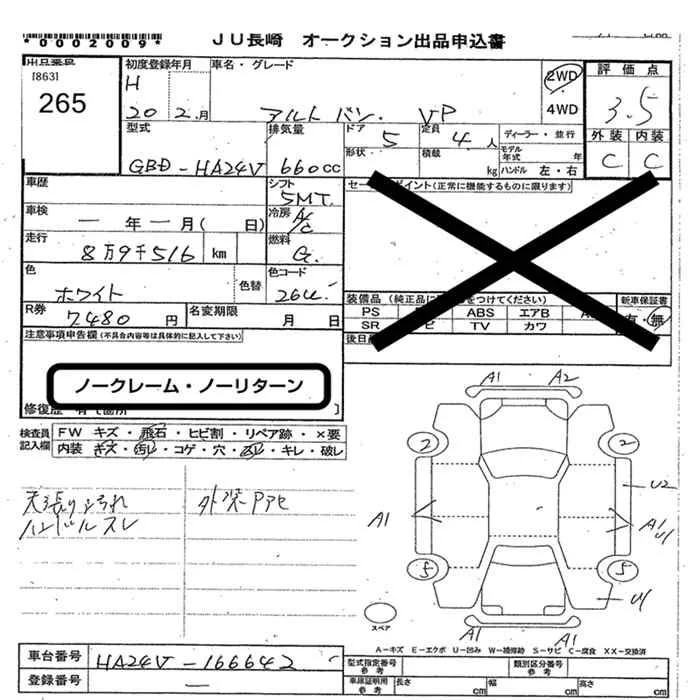 *0002009*
JU長崎 オークション出品申込書
出品番号
[863]
265
初度登録年月
H
20年 2月
車名・グレード
アルト バン. VP
2WD
4WD
評価点
3.5
外装 内装
C C
型式
GBD-HA24V
排気量
660cc
ドア 5
形状
定員 4人
積載 kg
ディーラー・並行
モデル年式 年
ハンドル 左・右
車歴
シフト
5MT.
車検
ー年ー月( 日)
冷房
A/C
走行
8万9千516 km
燃料
G.
色
ホワイト
色替
色コード
26U.
R券
7480円
名変期限 月 日
注意事項申告欄(不具合内容等は具体的に記入して下さい)
ノークレーム・ノーリターン
修復歴 有
セールスポイント(正常に機能するものに限ります)
装備品(純正品に をつけてください) 新車保証書
PS ABS エアB 有・無
SR TV カワ
検査員記入欄
FW キズ・飛石・ヒビ割・リペア跡・×要
内装 キズ・汚レ・コゲ・穴・スレ・キレ・破レ
天張り汚れ 外装Pアセ
ハンドルスレ
A1 A2
2 2
U2
A1 A1
U1
5 5
U1
スペア
A-キズ E-エクボ U-凹み W-補修跡 S-サビ C-腐食 XX-交換済
車台番号 HA24V-166642
登録番号 ー
型式指定番号 参考
類別区分番号 参考
車庫証明用 参考 長さ cm 幅 cm 高さ cm